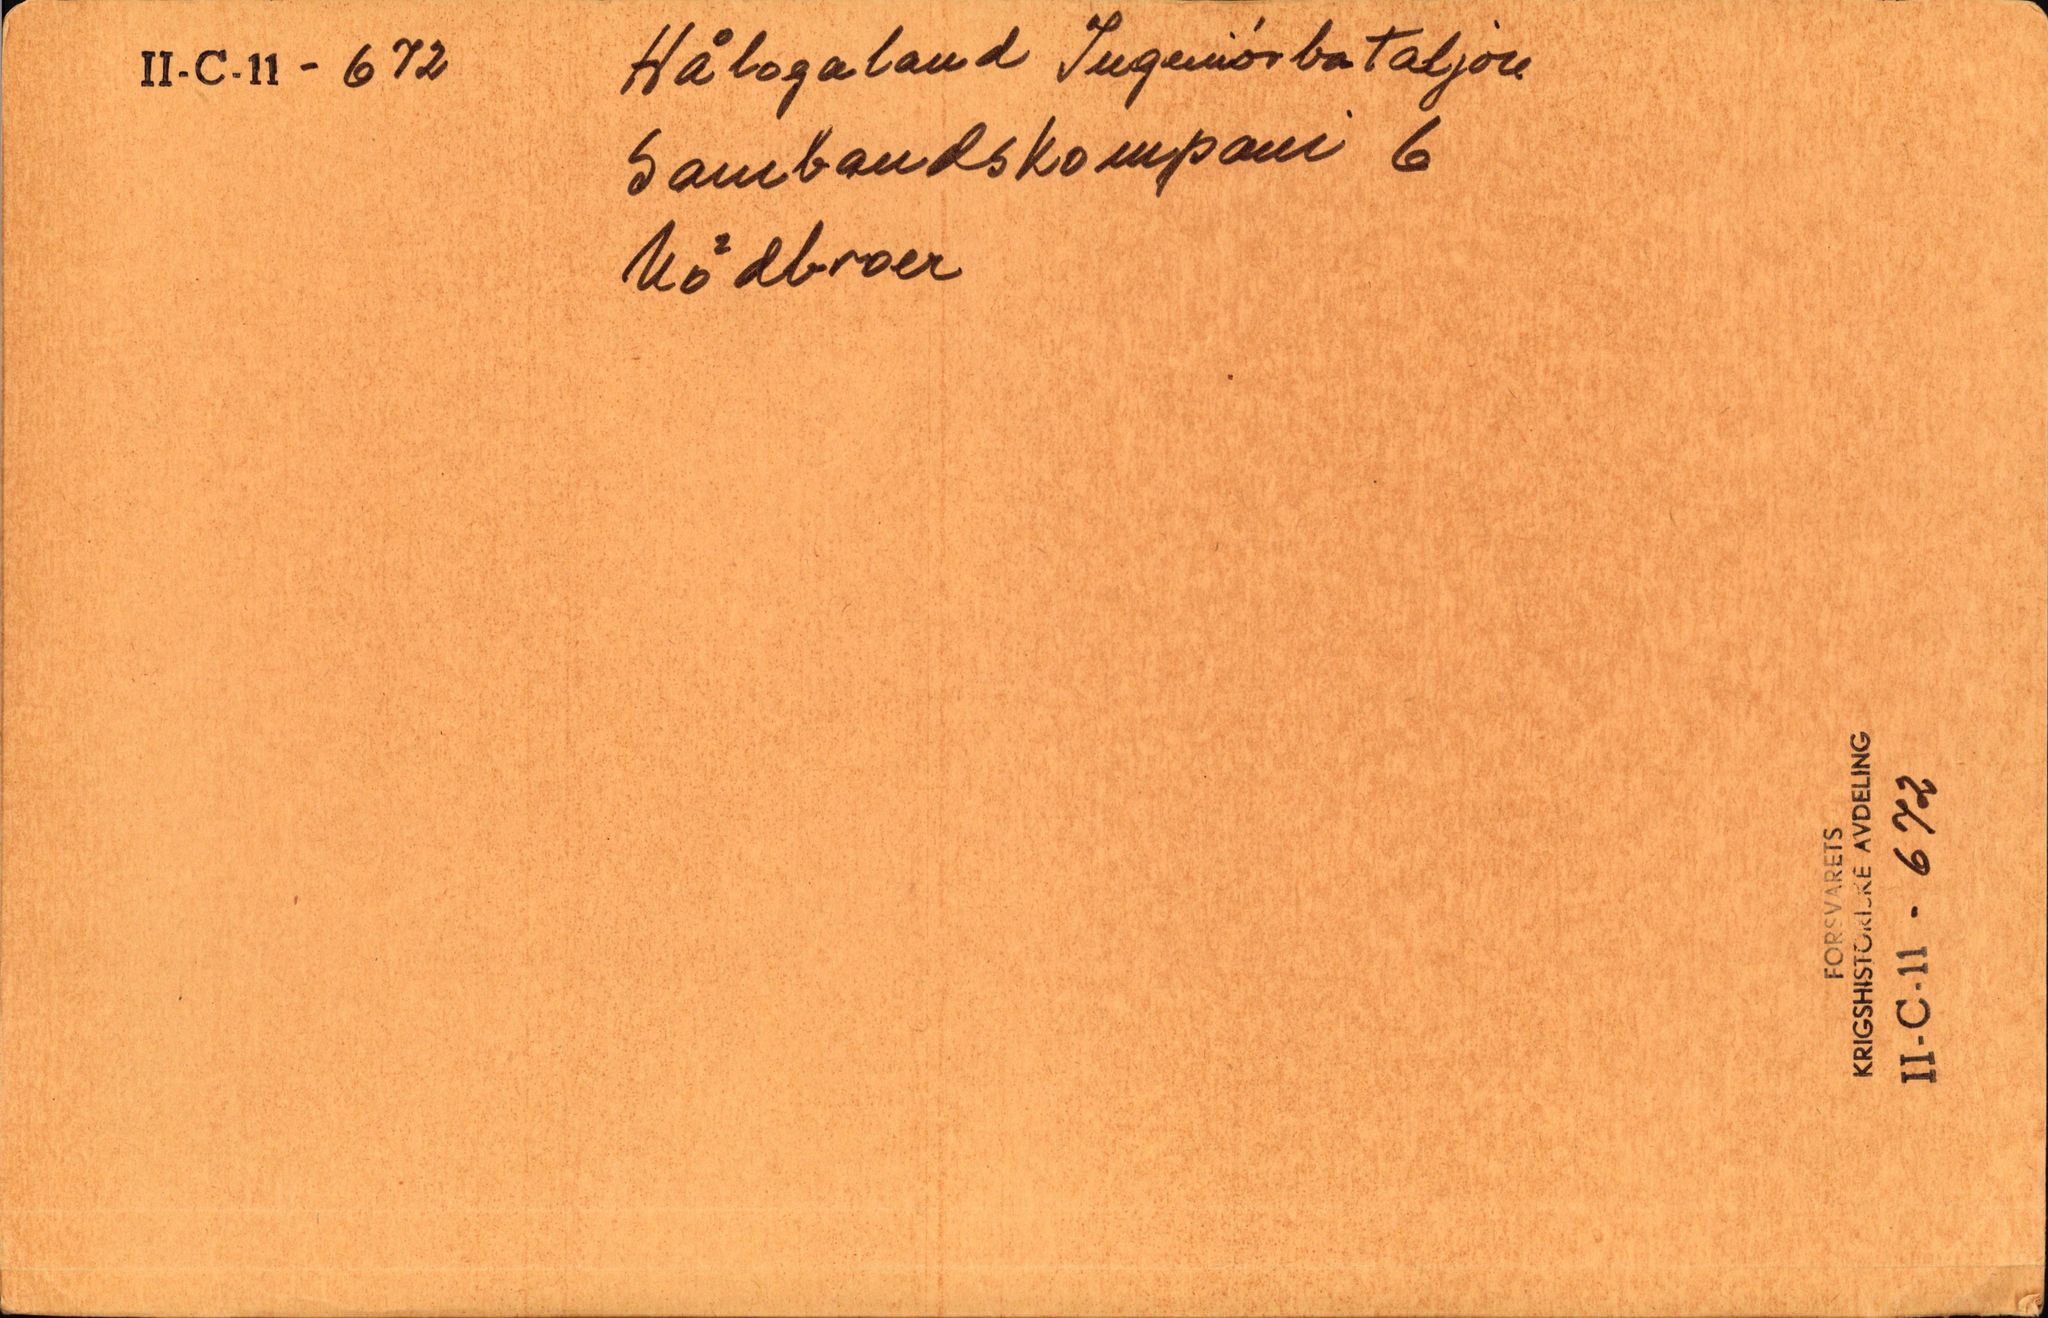 II-C-11 - 672
Hålogaland Ingeniörbataljon
Sambandskompani 6
Nödbroer
FORSVARETS
KRIGSHISTORISKE AVDELING
II-C-11 - 672